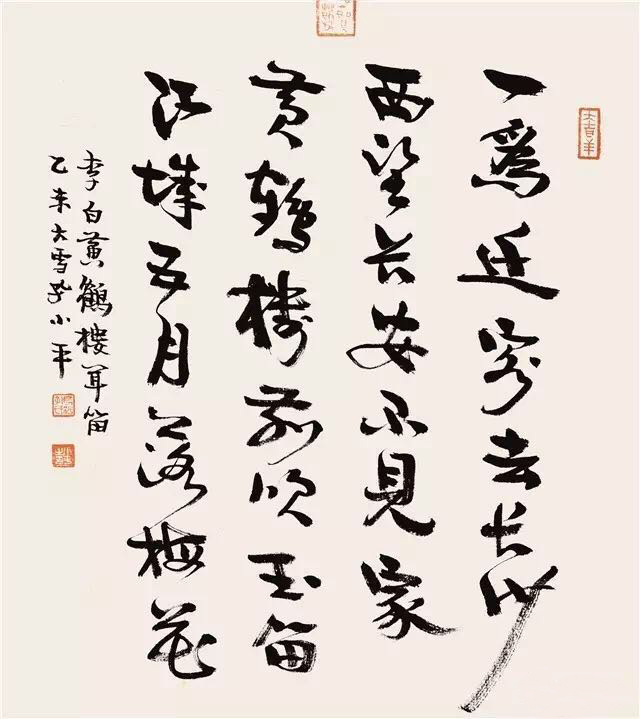 一為迁客去长沙
西望长安不見家
黄鹤楼前吹玉笛
江城五月落梅花
李白黄鹤楼耳笛
乙未大雪孔小平
大吉羊